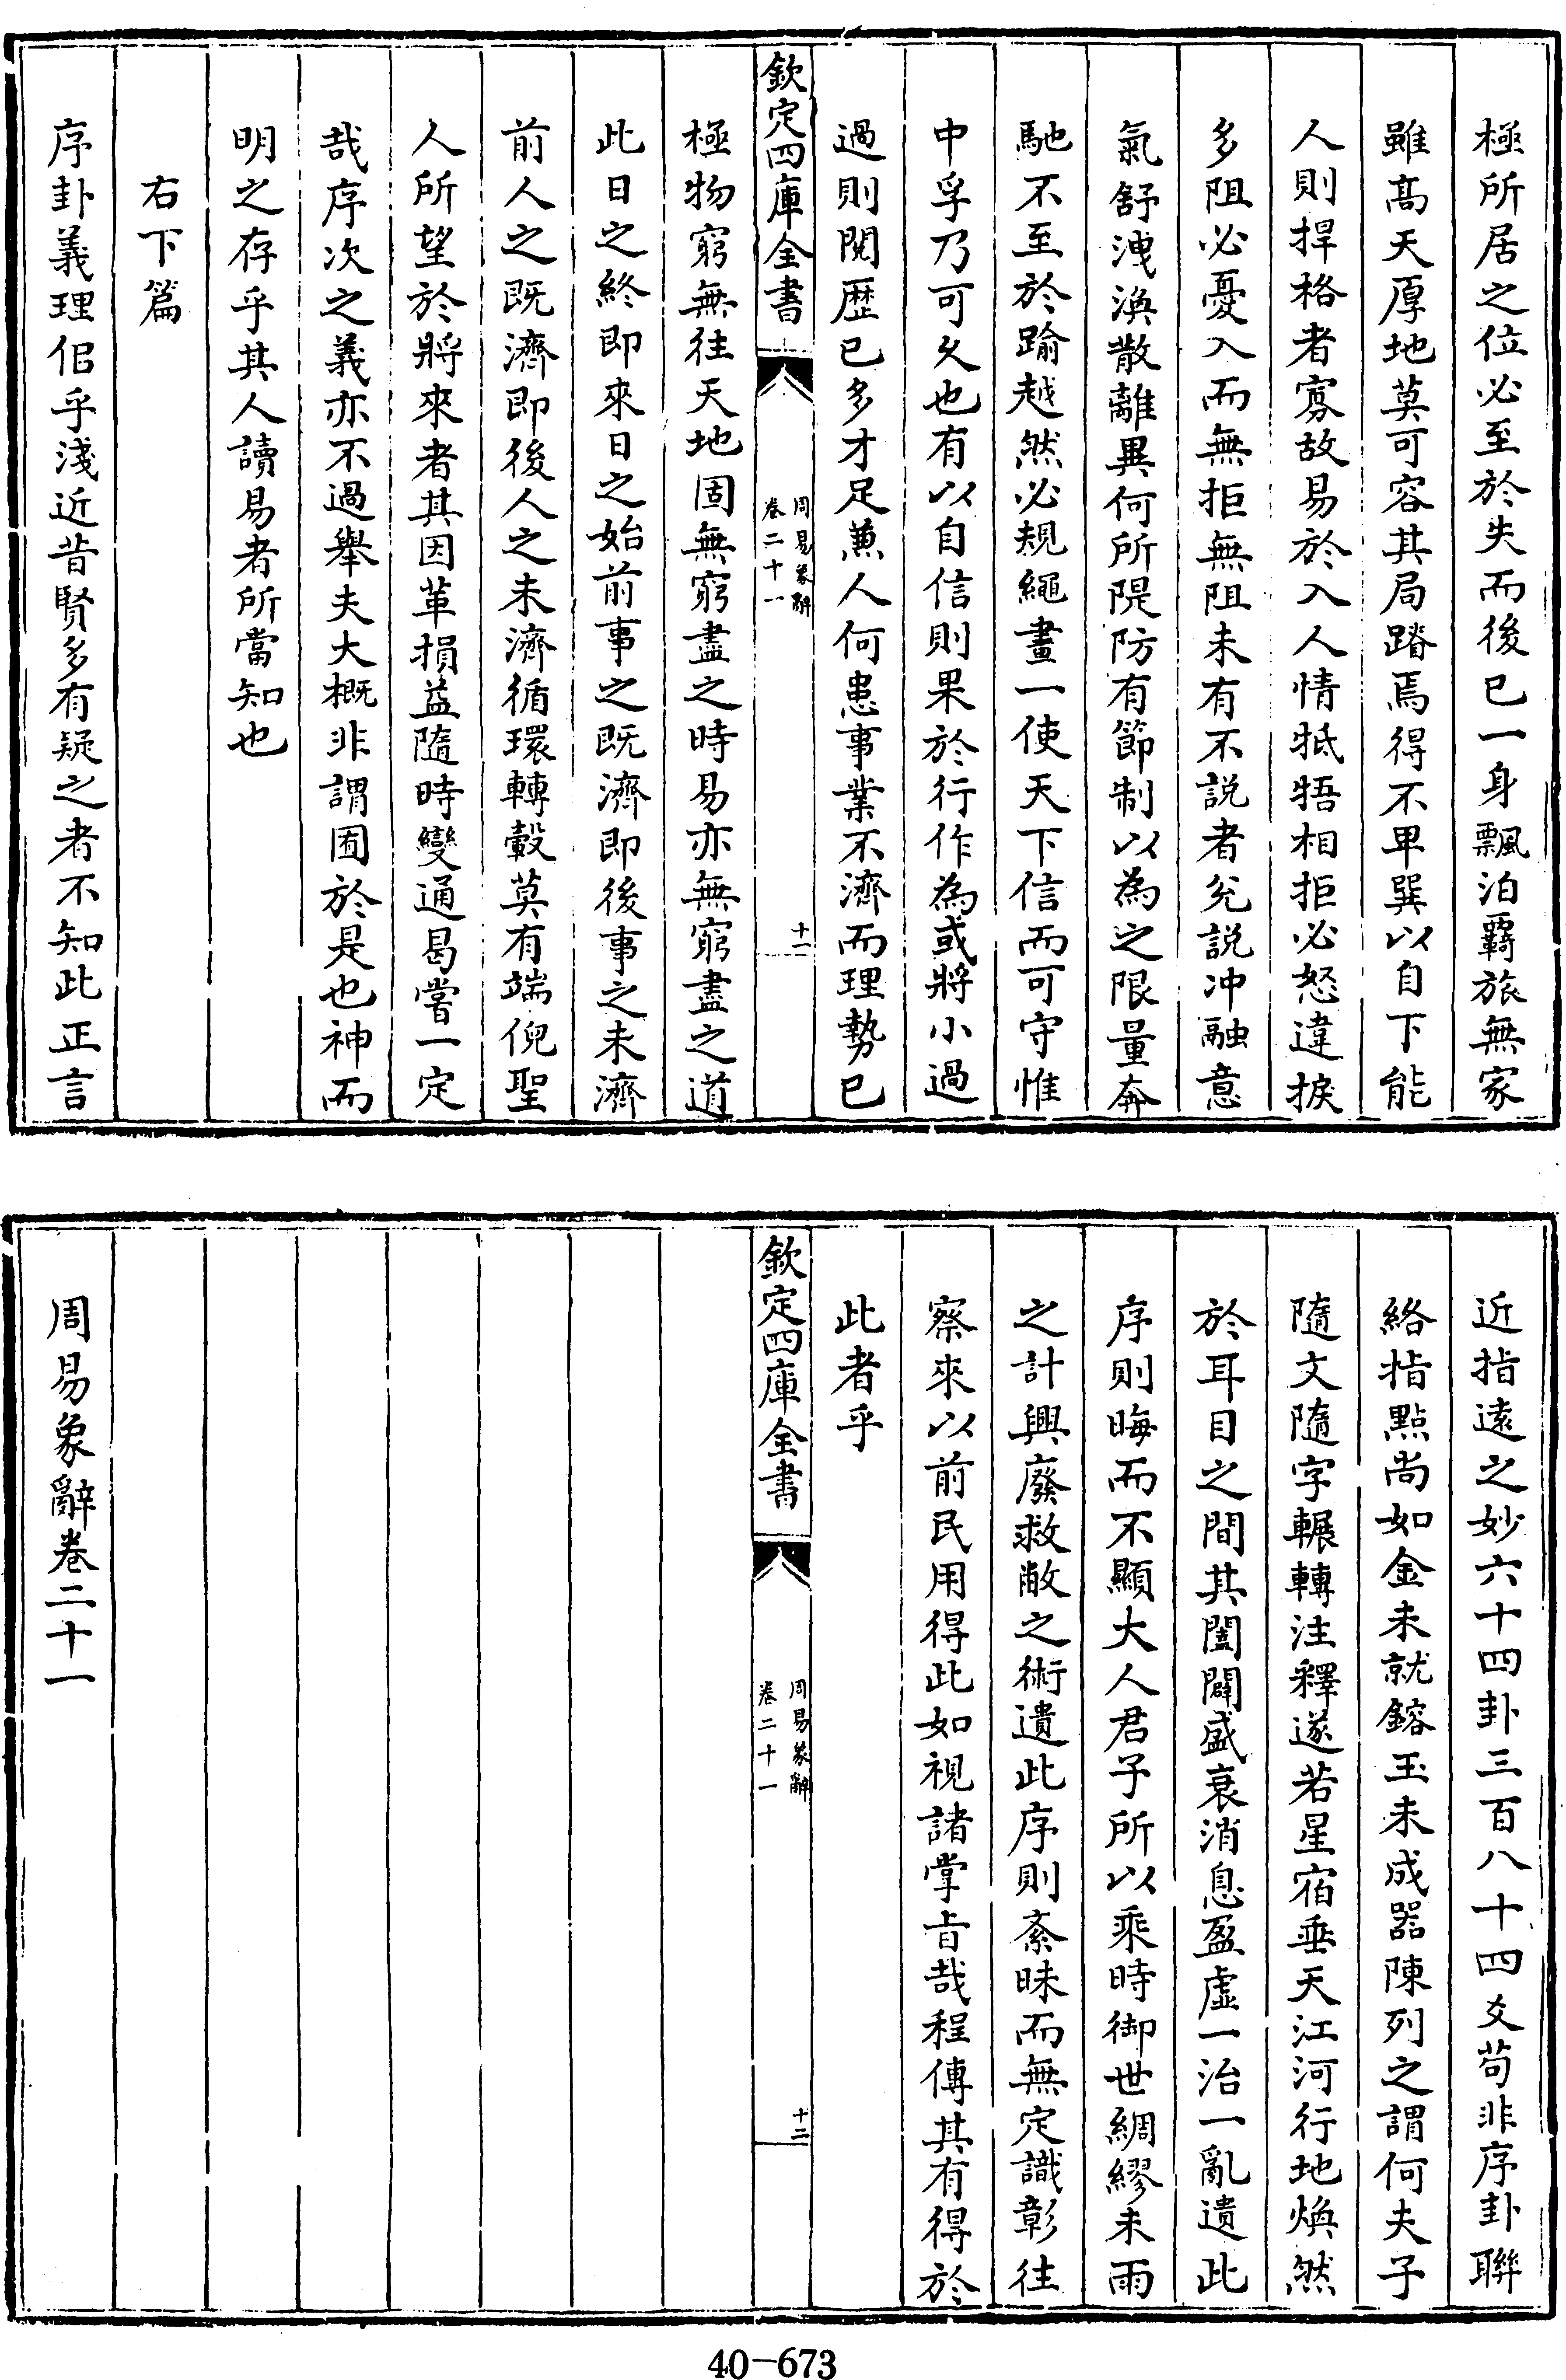 極所居之位必至於失而後已一身飄泊覊旅無家
雖髙天厚地莫可容其局蹐焉得不卑巽以自下能
人則捍格者寡故易於入人情牴牾相拒必怒違捩
多阻必憂入而無拒無阻未有不説者兊説冲融意
氣舒洩渙散離異何所隄防有節制以為之限量奔
馳不至於踰越然必規繩畫一使天下信而可守惟
中孚乃可乆也有以自信則果於行作為或將小過
過則閱歴已多才足兼人何患事業不濟而理勢已
欽定四庫全書
周易象辭
卷二十一
十一
極物窮無往天地固無窮盡之時易亦無窮盡之道
此日之終即來日之始前事之既濟即後事之未濟
前人之既濟即後人之未濟循環轉轂莫有端倪聖
人所望於將來者其因革損益隨時變通曷嘗一定
哉序次之義亦不過舉夫大概非謂囿於是也神而
明之存乎其人讀易者所當知也
右下篇
序卦義理佀乎淺近昔賢多有疑之者不知此正言
近指逺之妙六十四卦三百八十四爻苟非序卦聯
絡指點尚如金未就鎔玉未成器陳列之謂何夫子
隨文隨字輾轉注釋遂若星宿垂天江河行地煥然
於耳目之間其闔闢盛衰消息盈虛一治一亂遺此
序則晦而不顯大人君子所以乘時御世綢繆未雨
之計興廢救敝之術遺此序則紊昧而無定識彰往
察來以前民用得此如視諸掌㫖哉程傳其有得於
此者乎
欽定四庫全書
周易象辭
卷二十一
十二
周易象辭卷二十一
40-673